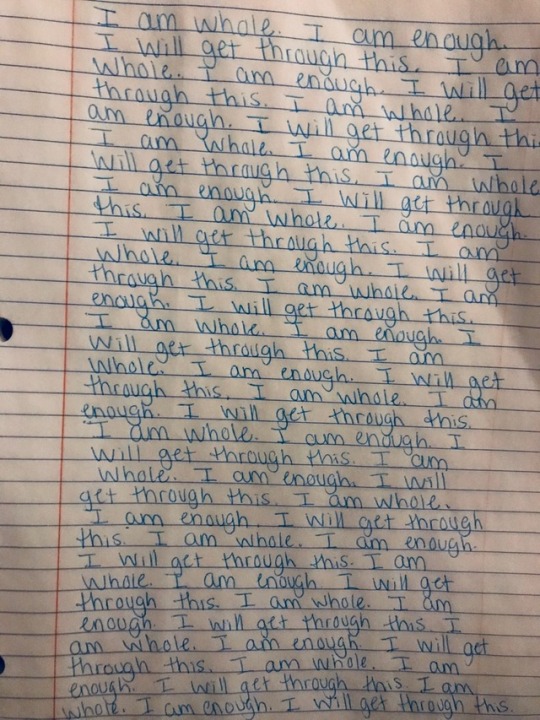 I am whole. I am enough.
I will get through this. I am
whole. I am enough. I will get
through this. I am whole. I
am enough. I will get through thi
I am whole. I am enough. I
will get through this. I am whole
I am enough. I will get through
this. I am whole. I am enough.
I will get through this. I am
whole. I am enough. I will get
through this. I am whole. I am
enough. I will get through this.
I am whole. I am enough. I
will get through this. I am
whole. I am enough. I will get
through this. I am whole. I am
enough. I will get through this.
I am whole. I am enough. I
will get through this. I am
whole. I am enough. I will
get through this. I am whole.
I am enough. I will get through
this. I am whole. I am enough.
I will get through this. I am
whole. I am enough I will get
through this. I am whole. I am
enough. I will get through this I
am whole. I am enough. I will get
through this. I am whole. I am
enough. I will get through this. I am
whole. I am enough. I will get through this.